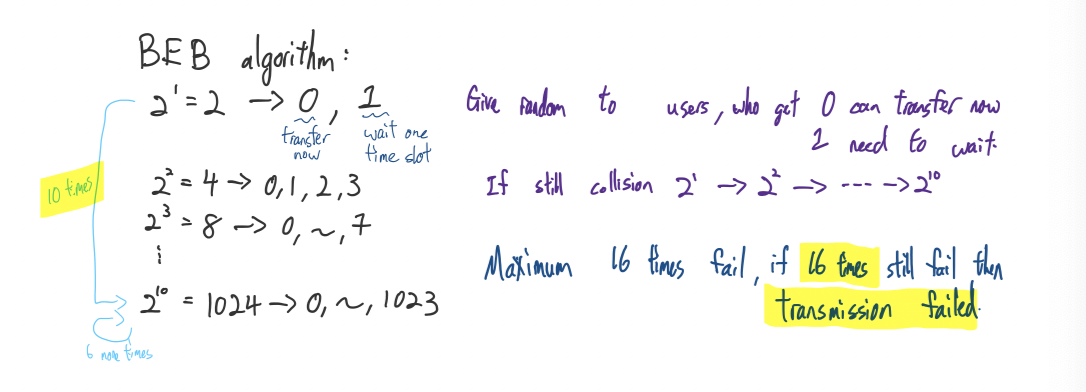 BEB algorithm:
2¹ = 2 → 0, 1
transfer now
wait one time slot
2² = 4 → 0, 1, 2, 3
2³ = 8 → 0, ~, 7
⋮
2¹⁰ = 1024 → 0, ~, 1023
10 times
6 more times
Give random to users, who get 0 can transfer now
1 need to wait.
If still collision 2¹ → 2² → ---- → 2¹⁰
Maximum 16 times fail, if 16 times still fail then
transmission failed.